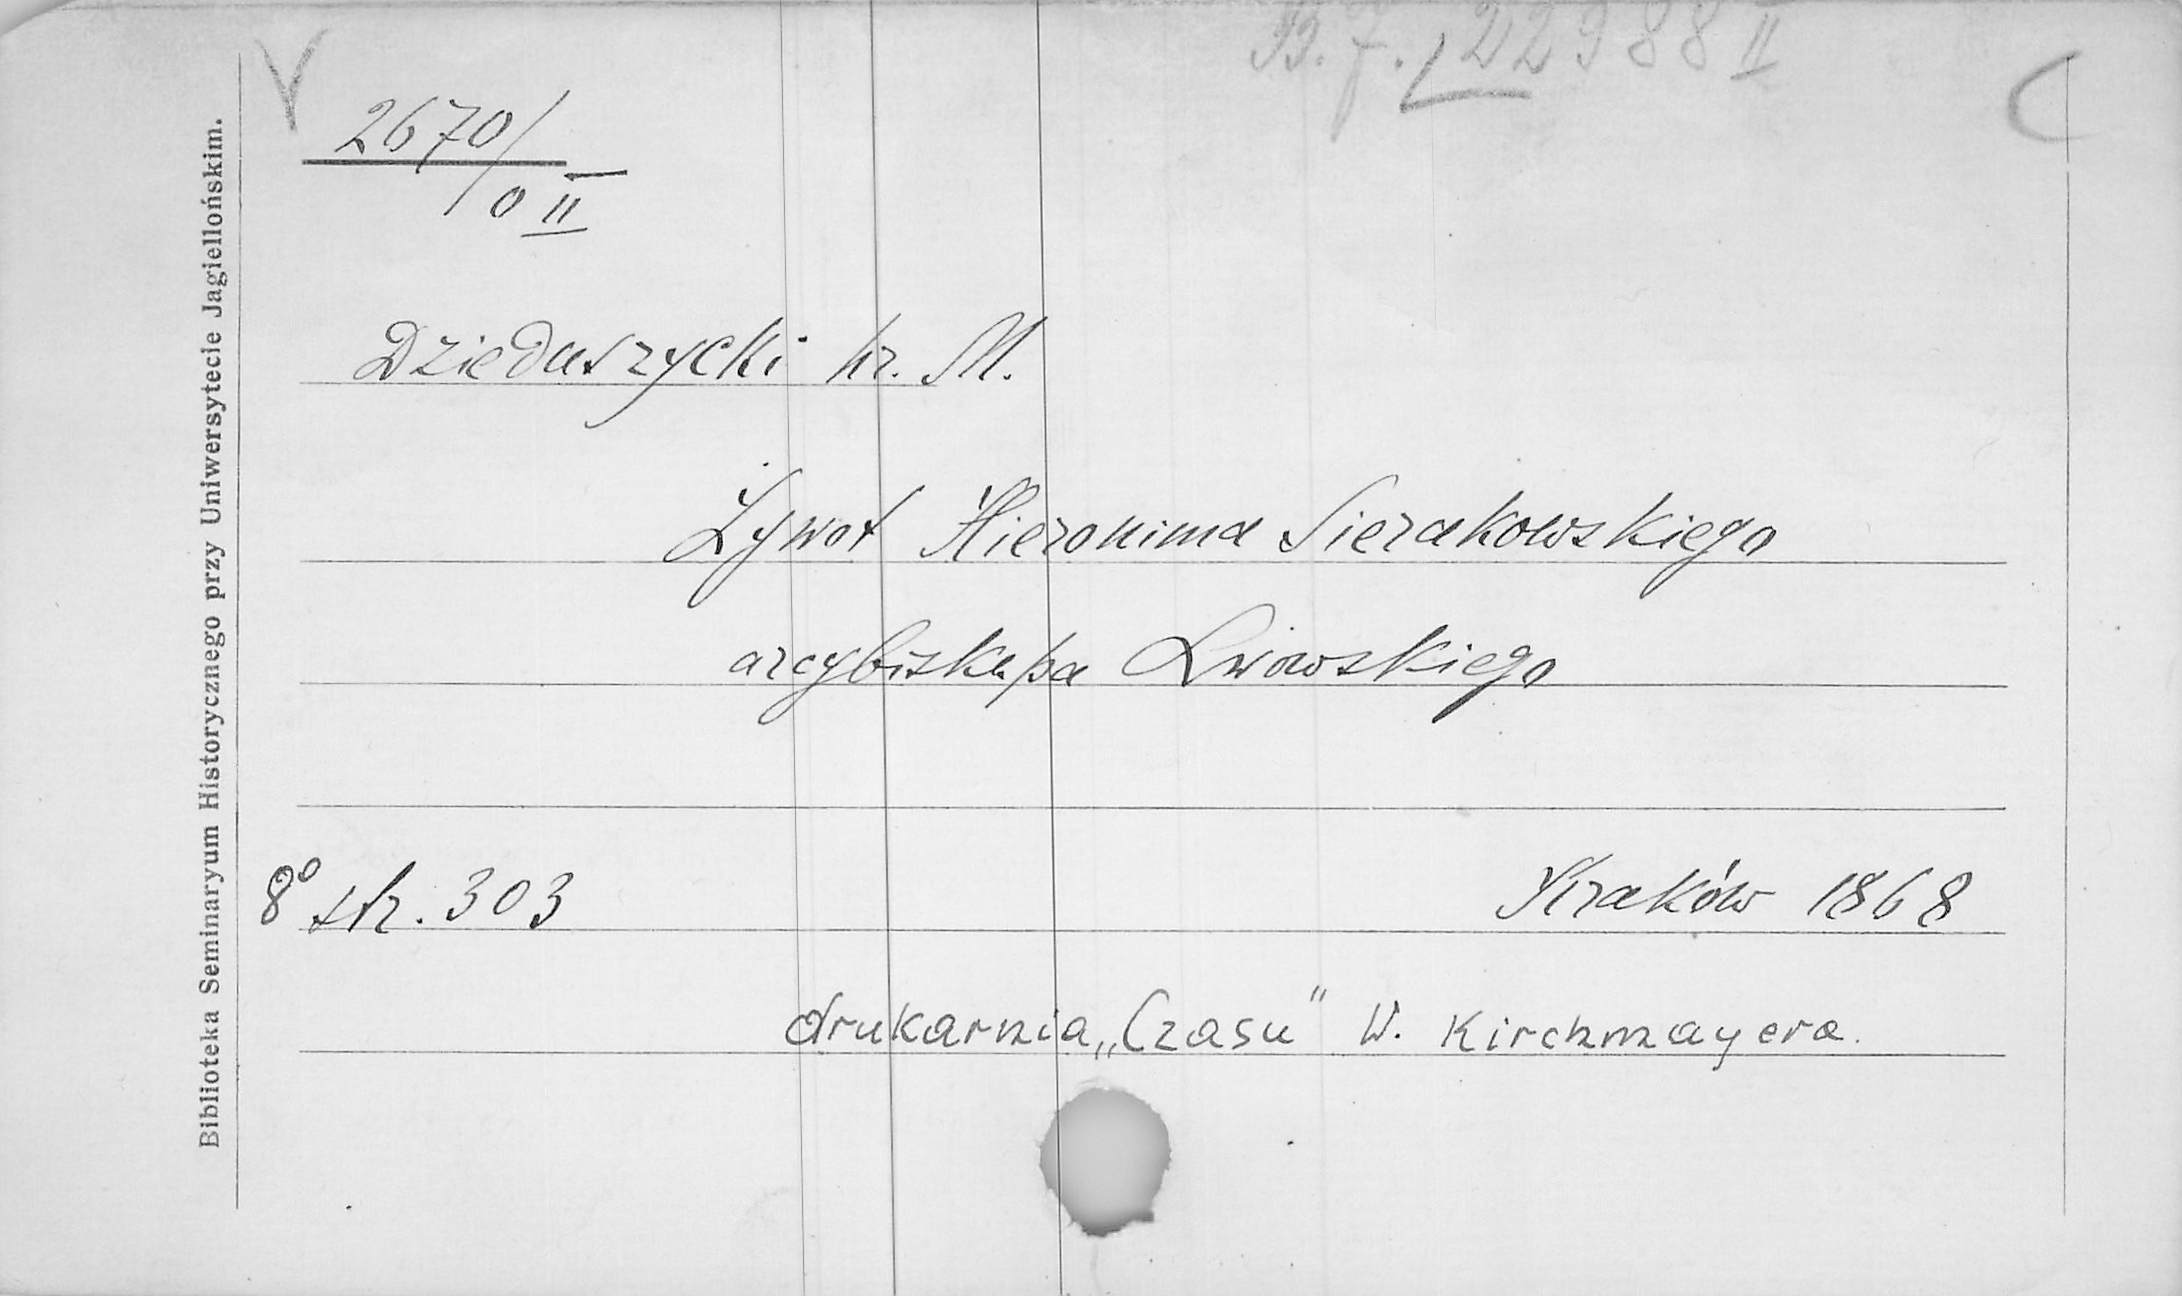 B.J. 22988 II
2670/
0 II
Dzieduszycki hr. M.
Żywot Hieronima Sierakowskiego
arcybiskupa Lwowskiego
8° str. 303
Kraków 1868
drukarnia „Czasu" W. Kirchmayera.
Biblioteka Seminaryum Historycznego przy Uniwersytecie Jagiellońskim.